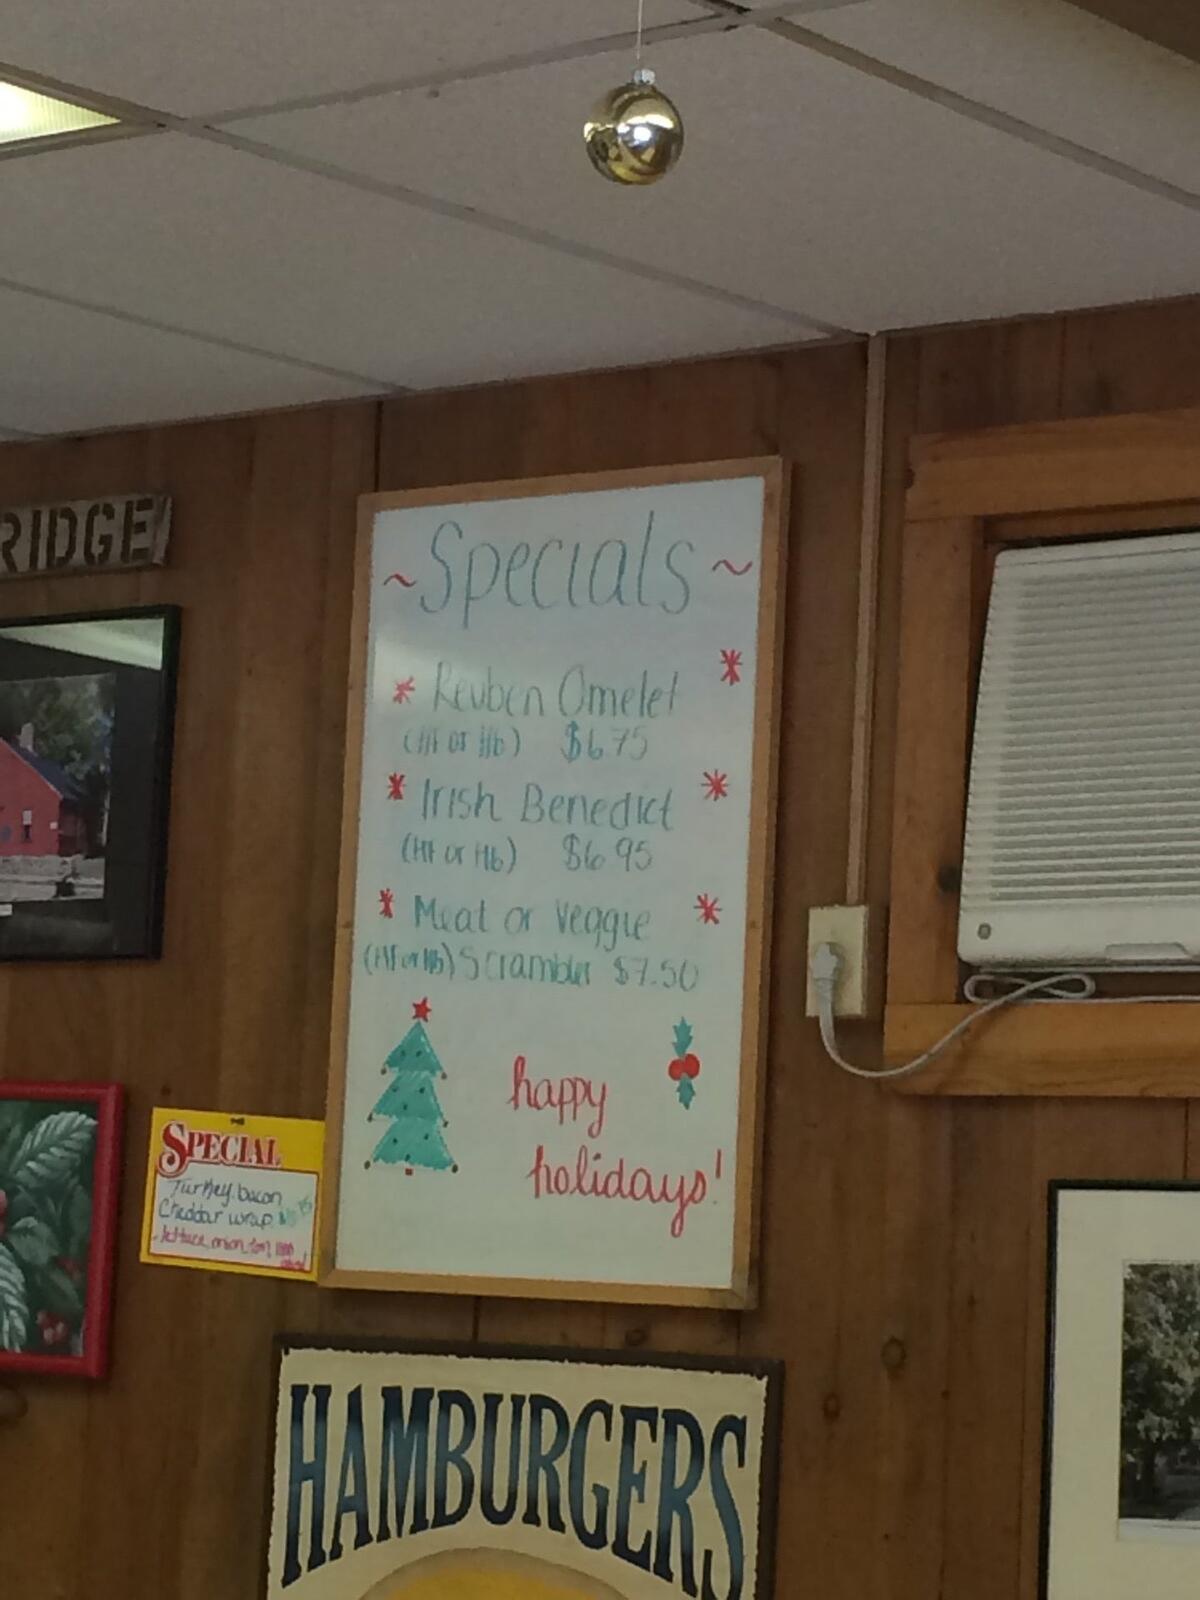 RIDGE
~Specials~
* Reuben Omelet *
(HF or Hb) $6.75
* Irish Benedict *
(HF or Hb) $6.95
* Meat or Veggie *
(HF or Hb) Scrambler $7.50
happy
holidays!
SPECIAL
Turkey, bacon
Cheddar wrap
lettuce, onion, tom,
HAMBURGERS